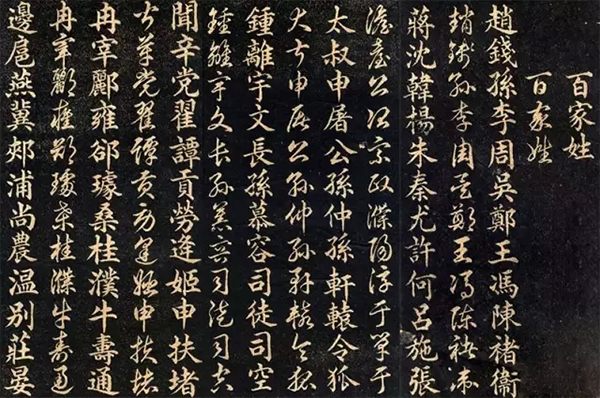 百家姓
百家姓
趙錢孫李周吳鄭王馮陳褚衞
趙錢孫李周吳鄭王馮陳褚衞
蔣沈韓楊朱秦尤許何呂施張
澹臺公冶宗政濮陽淳于單于
太叔申屠公孫仲孫軒轅令狐
太叔申屠公孫仲孫軒轅令狐
鍾離宇文長孫慕容司徒司空
鍾離宇文長孫慕容司徒司空
聞辛党翟譚貢勞逄姬申扶堵
聞莘党翟譚貢勞逄姬申扶堵
冉宰酈雍郤璩桑桂濮牛壽通
冉宰酈雍郤璩桑桂濮牛壽通
邊扈燕冀郟浦尚農温別莊晏